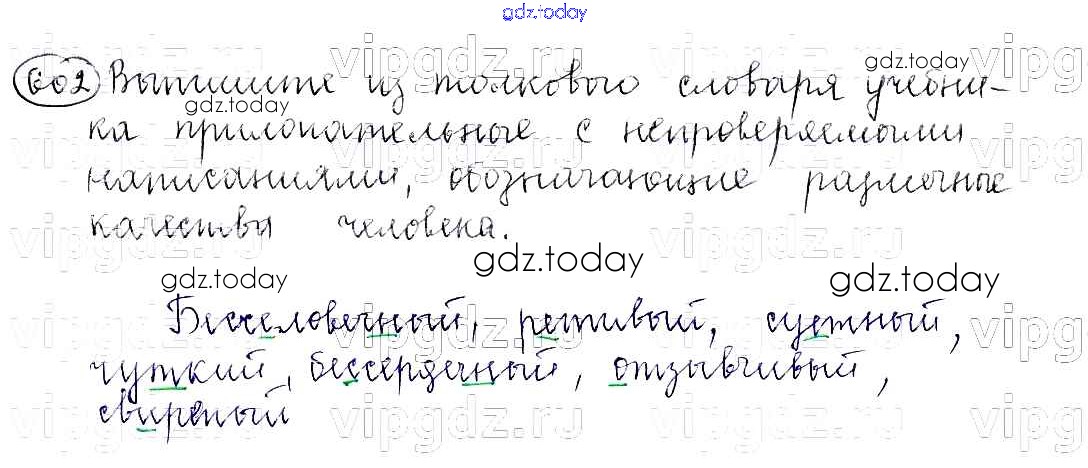 gdz.today
602 Выпишите из толкового словаря учебни-
ка прилагательные с непроверяемыми
написаниями, обозначающие различные
качества человека.
gdz.today
gdz.today
gdz.today
gdz.today
gdz.today
Бесчеловечный, ретивый, суетный,
чуткий, бессердечный, отзывчивый,
свирепый
vipgdz.ru